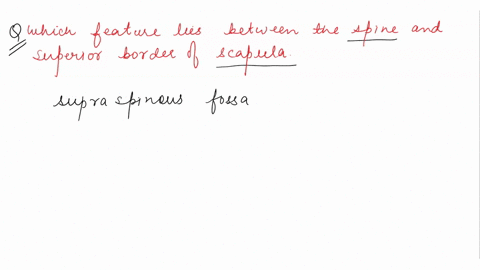 Q which feature lies between the spine and
superior border of scapula.
supraspinous fossa